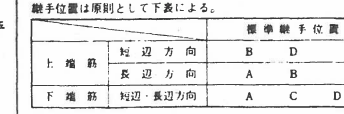 継手位置は原則として下表による。
標準継手位置
上端筋 短辺方向 B D
長辺方向 A B
下端筋 短辺・長辺方向 A C D